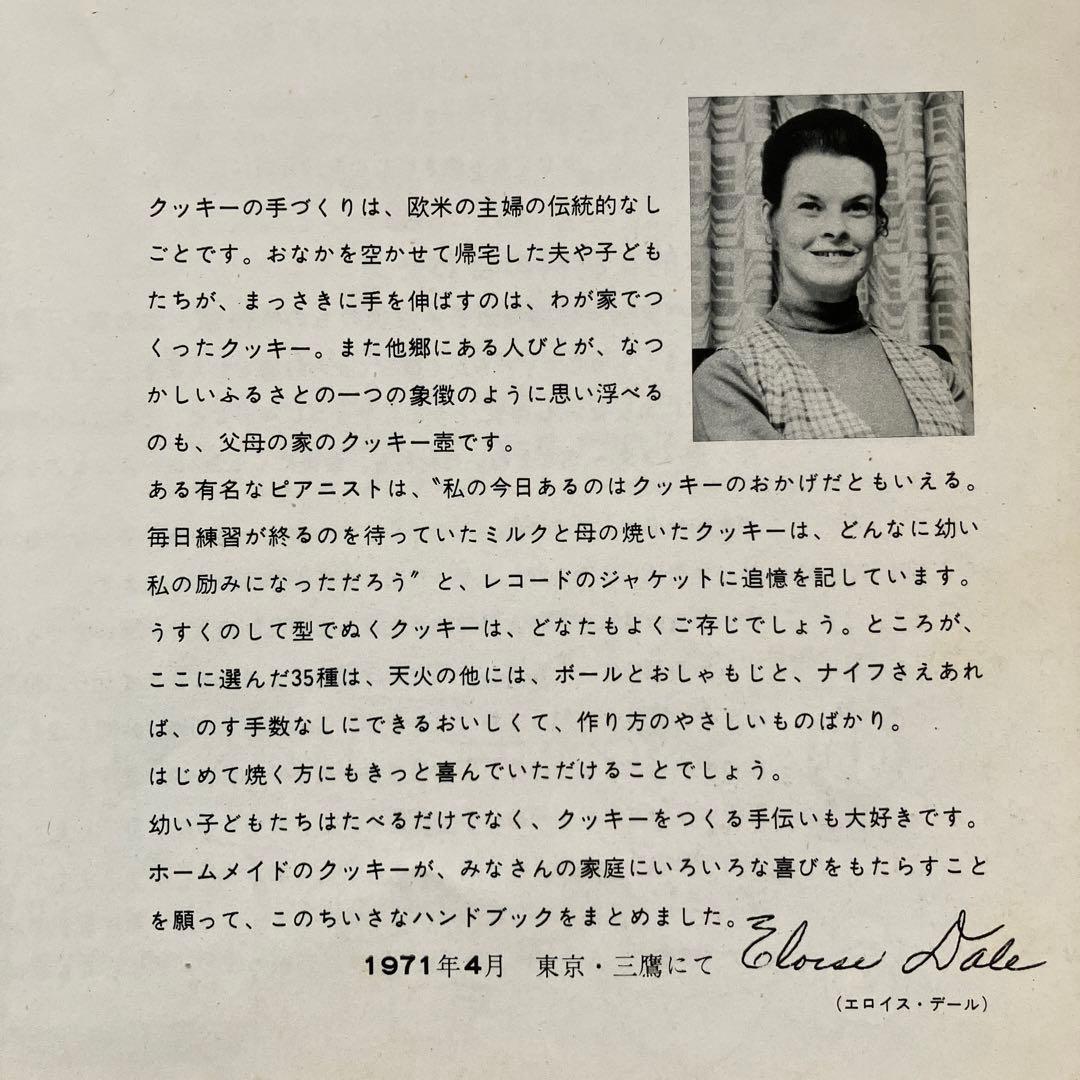 クッキーの手づくりは、欧米の主婦の伝統的なし
ごとです。おなかを空かせて帰宅した夫や子ども
たちが、まっさきに手を伸ばすのは、わが家でつ
くったクッキー。また他郷にある人びとが、なつ
かしいふるさとの一つの象徴のように思い浮べる
のも、父母の家のクッキー壺です。
ある有名なピアニストは、〝私の今日あるのはクッキーのおかげだともいえる。
毎日練習が終るのを待っていたミルクと母の焼いたクッキーは、どんなに幼い
私の励みになっただろう〞と、レコードのジャケットに追憶を記しています。
うすくのして型でぬくクッキーは、どなたもよくご存じでしょう。ところが、
ここに選んだ35種は、天火の他には、ボールとおしゃもじと、ナイフさえあれ
ば、のす手数なしにできるおいしくて、作り方のやさしいものばかり。
はじめて焼く方にもきっと喜んでいただけることでしょう。
幼い子どもたちはたべるだけでなく、クッキーをつくる手伝いも大好きです。
ホームメイドのクッキーが、みなさんの家庭にいろいろな喜びをもたらすこと
を願って、このちいさなハンドブックをまとめました。
1971年4月 東京・三鷹にて Eloise Dale
（エロイス・デール）